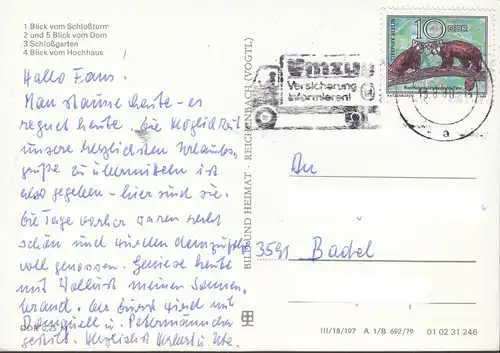 1 Blick vom Schloßturm
2 und 5 Blick vom Dom
3 Schloßgarten
4 Blick vom Hochhaus
Hallo Fans.
Man staune heute - es
regnet heute. Die Möglichkeit
unsere herzlichsten Urlaubs-
grüße zu übermitteln ist
also gegeben - hier sind sie.
Die Tage vorher waren recht
schön und wurden demzufolge
voll genossen. Geniese heute
mit Wollust meinen Sonnen-
brand. Der Durst wird mit
u. Petermännchen
gestillt. Herzlichst Herbert u. Ute.
DDR 0,25 M
BILD UND HEIMAT · REICHENBACH (VOGTL)
Umzug
Versicherung
informieren!
10 DDR
TIERPARK BERLIN
a
An
3591 Badel
III/18/197 A 1/B 692/79 01 02 31 246